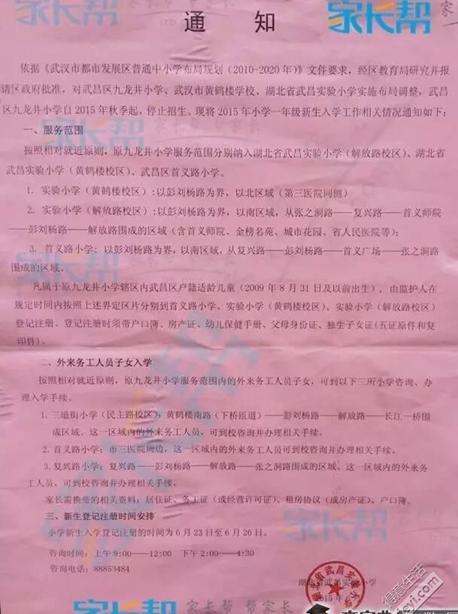 家长帮
通 知
依据《武汉市都市发展区普通中小学布局规划（2010-2020年）》文件要求，经区教育局研究并报
请区政府批准，对武昌区九龙井小学、武汉市黄鹤楼学校、湖北省武昌实验小学实施布局调整，武昌
区九龙井小学自2015年秋季起，停止招生。现将2015年小学一年级新生入学工作相关情况通知如下：
一、服务范围
按照相对就近原则，原九龙井小学服务范围分别纳入湖北省武昌实验小学（解放路校区）、湖北省
武昌实验小学（黄鹤楼校区）、武昌区首义路小学。
1. 实验小学（黄鹤楼校区）：以彭刘杨路为界，以北区域（第三医院同侧）
2. 实验小学（解放路校区）：以彭刘杨路为界，以南区域，从张之洞路——复兴路——首义师院
——彭刘杨路——解放路围成的区域（含首义师院、金榜名苑、城市花园、省人民医院等）；
3. 首义路小学：以彭刘杨路为界，以南区域，从复兴路——首义广场——张之洞路
围成的区域。
凡属于原九龙井小学辖区内武昌区户籍适龄儿童（2009年8月31日及以前出生），由监护人在
规定时间内按照上述界定区片分别到首义路小学、实验小学（黄鹤楼校区）、实验小学（解放路校区）
登记注册。登记注册时须带户口簿、房产证、幼儿保健手册、父母身份证、独生子女证（五证原件和复
印件）。
二、外来务工人员子女入学
按照相对就近原则，原九龙井小学服务范围内的外来务工人员子女，可到以下三所小学咨询、办
理入学手续。
1. 三道街小学（民主路校区）：黄鹤楼南路（下桥匝道）——彭刘杨路——解放路——长江一桥围
成区域。这一区域内的外来务工人员，可到校咨询并办理相关手续。
2. 首义路小学：市三医院周边，这一区域内的外来务工人员，可到校咨询并办理相关手续。
3. 复兴路小学：复兴路——彭刘杨路——解放路——张之洞路围成的区域。这一区域内的外来务
工人员，可到校咨询并办理相关手续。
家长需携带的相关资料：居住证、务工证（或经营许可证）、租房协议（或房产证）、户口簿。
三、新生登记注册时间安排
小学新生入学登记注册的时间为6月23日至6月26日。
咨询时间：上午9:00——12:00 下午2:00——4:30
咨询电话：88853484
家长帮 帮家长